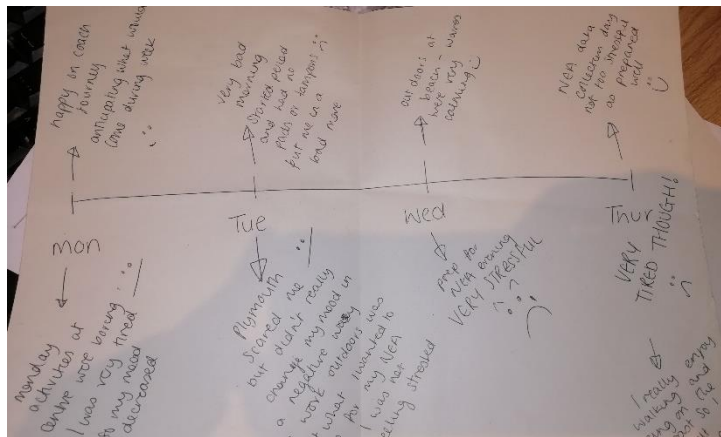 happy on coach
journey
anticipating what would
come during week
very bad
morning
started period
and had no
pads or tampons
put me in a
bad move
outdoors at
beach - waves
were very
calming
NEA data
collection day
not too stressful
as prepared
well
Mon
Tue
Wed
Thur
monday
activities at
centre were boring.
I was very tired
so my mood
decreased
Plymouth
scared me
but didn't really
change my mood in
a negative way
work outdoors was
what I wanted to
for my NEA
I was not
feeling stressed
prep for
NEA evening
VERY STRESSFUL
VERY
TIRED THOUGH!
I really
enjoy
walking and
on
so the